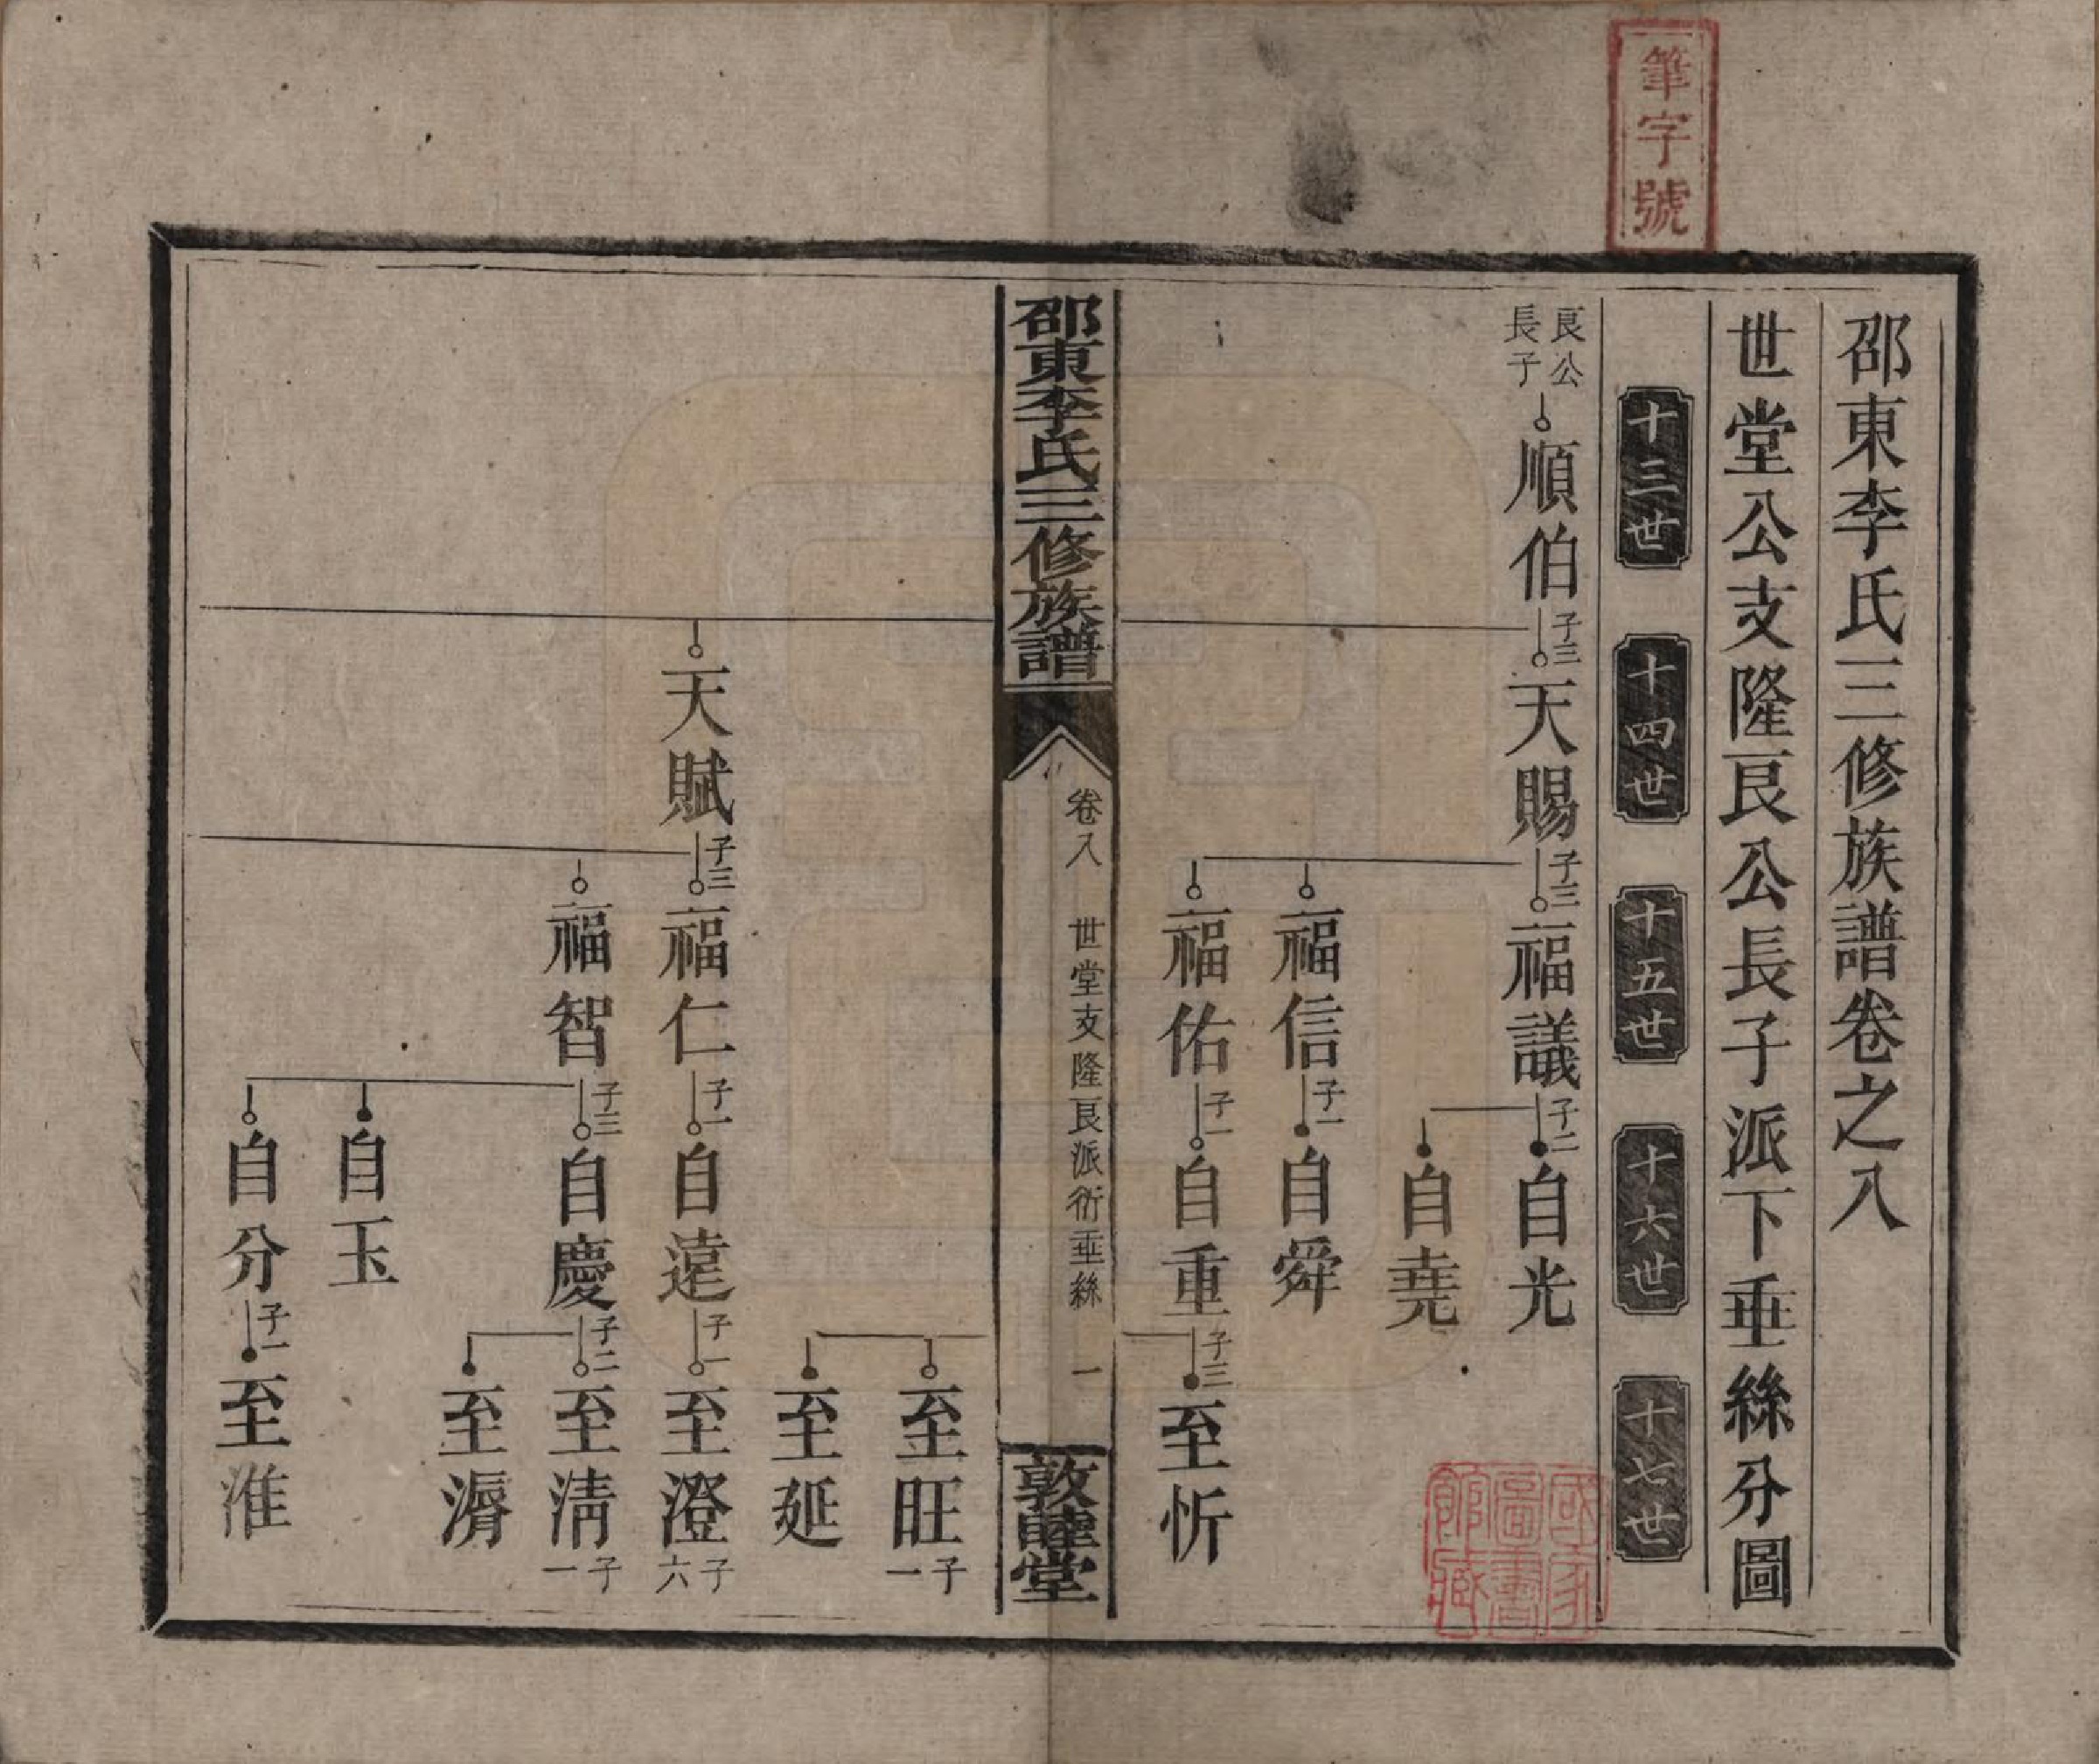 筆字號
邵東李氏三修族譜卷之八
世堂公支隆艮公長子派下垂絲分圖
十三世
十四世
十五世
十六世
十七世
艮公
長子
順伯
子三
天賜
子三
福議
子二
自光
自堯
福信
子一
自舜
福佑
子一
自重
子三
至忻
國家圖書館藏
邵東李氏三修族譜
卷八
世堂支隆艮派衍垂絲
一
敦睦堂
至旺
子一
至延
天賦
子三
福仁
子一
自遠
子一
至澄
子六
福智
子三
自慶
子二
至淸
子一
至濟
自玉
自分
子一
至淮